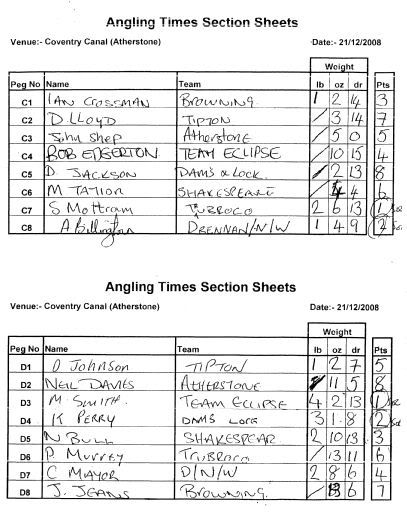 Angling Times Section Sheets
Venue:- Coventry Canal (Atherstone) Date:- 21/12/2008
Weight
Peg No Name Team lb oz dr Pts
C1 IAN CROSSMAN BROWNING 1 2 14 3
C2 D LLOYD TIPTON / 3 14 7
C3 John Shep Atherstone / 5 0 5
C4 BOB EDGERTON TEAM ECLIPSE / 10 15 4
C5 D. JACKSON DAMS & LOCK. / 2 13 8
C6 M TAYLOR SHAKESPEARE / 4 4 6
C7 S Mottram TRUBROCO 2 6 13 1
C8 A Billington DRENNAN/N/W 1 4 9 2
Angling Times Section Sheets
Venue:- Coventry Canal (Atherstone) Date:- 21/12/2008
Weight
Peg No Name Team lb oz dr Pts
D1 D Johnson TIPTON 1 2 7 5
D2 NEIL DAVIES ATHERSTONE / 11 5 8
D3 M SMITH. TEAM ECLIPSE 4 2 13 1
D4 K PERRY DAMS LOCK 3 1 8 2
D5 N BULL SHAKESPEAR 2 10 13 3
D6 P MURREY TRUBROCO / 13 11 6
D7 C MAYOR D/N/W 2 8 6 4
D8 J. JEANS BROWNING. / 13 6 7